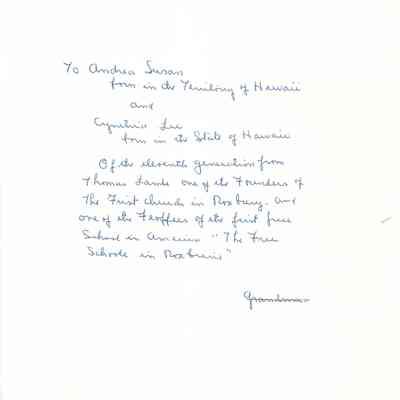 To Andrea Susan
born in the Territory of Hawaii
and
Cynthia Lee
born in the State of Hawaii
Of the eleventh generation from
Thomas Lamb one of the Founders of
The First Church in Roxbury. and
one of the Feoffees of the first free
School in America "The Free
Schoole in Roxburie"
Grandma